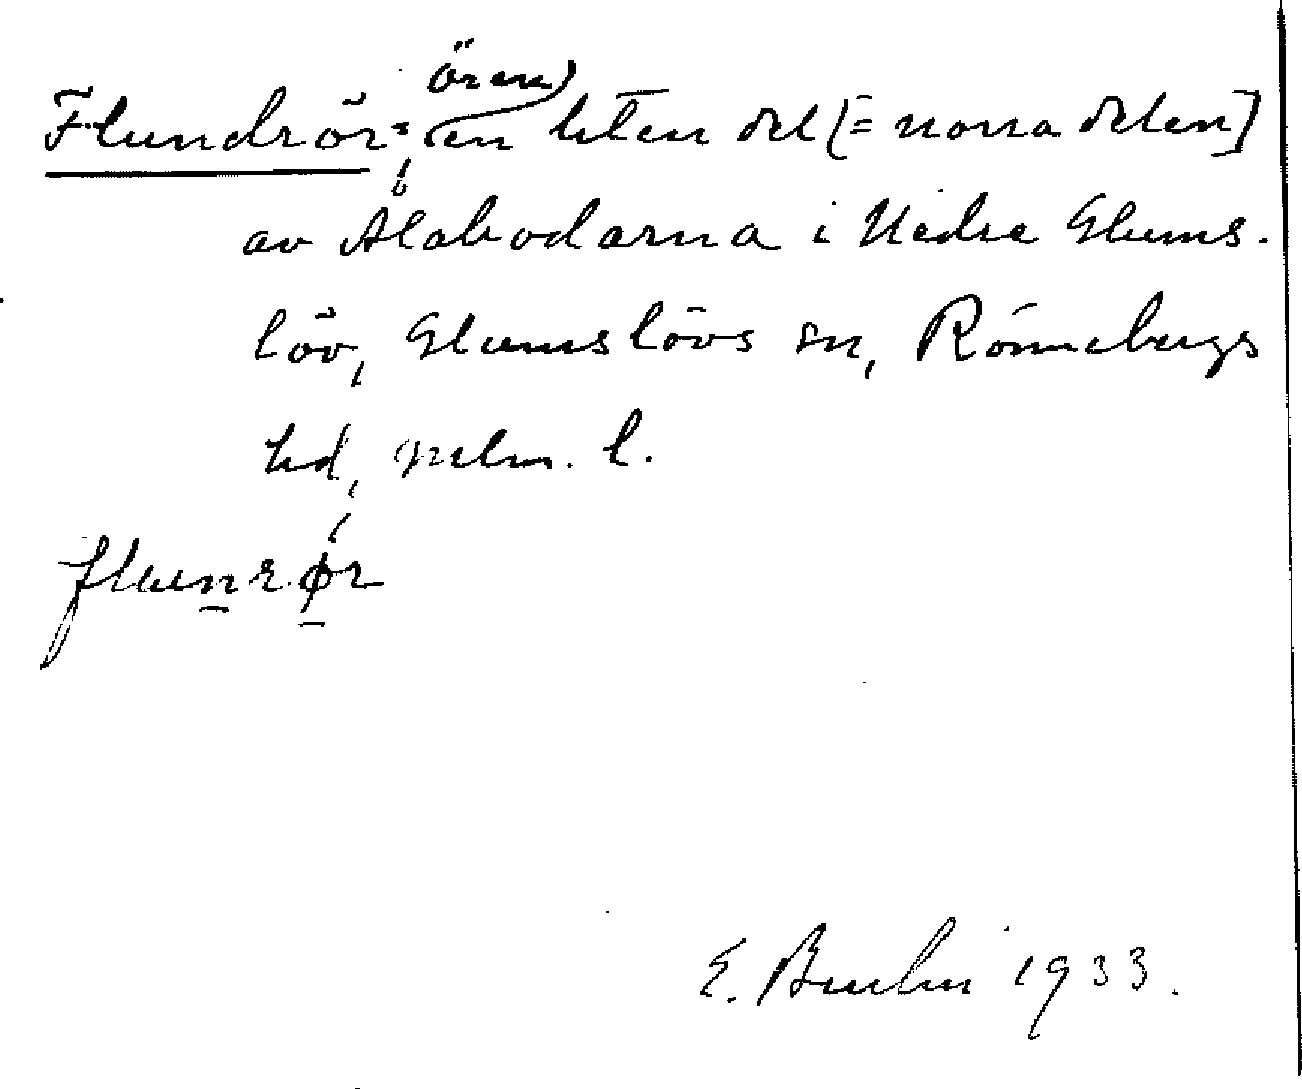 ören)
Flundrör: en liten del [= norra delen]
av Ålabodarna i Nedre Glums-
löv, Glumslövs sn, Rönnebergs
hd, Mlm. l.
flunrør
E. 1933.